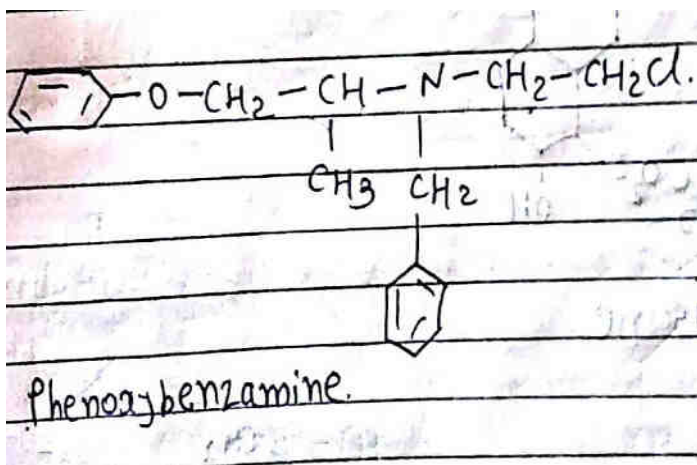 -O-CH2-CH-N-CH2-CH2Cl.
CH3 CH2
Phenoxybenzamine.